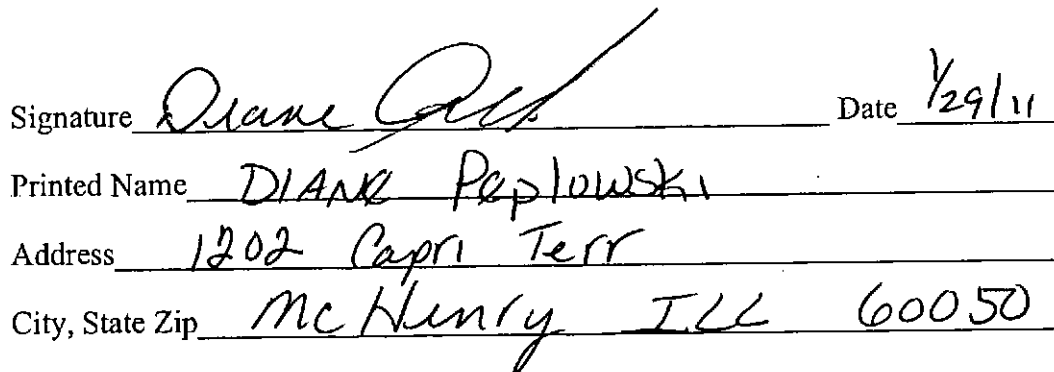 Signature Diane Date 1/29/11
Printed Name DIANE Peplowski
Address 1202 Capri Terr
City, State Zip McHenry ILL 60050